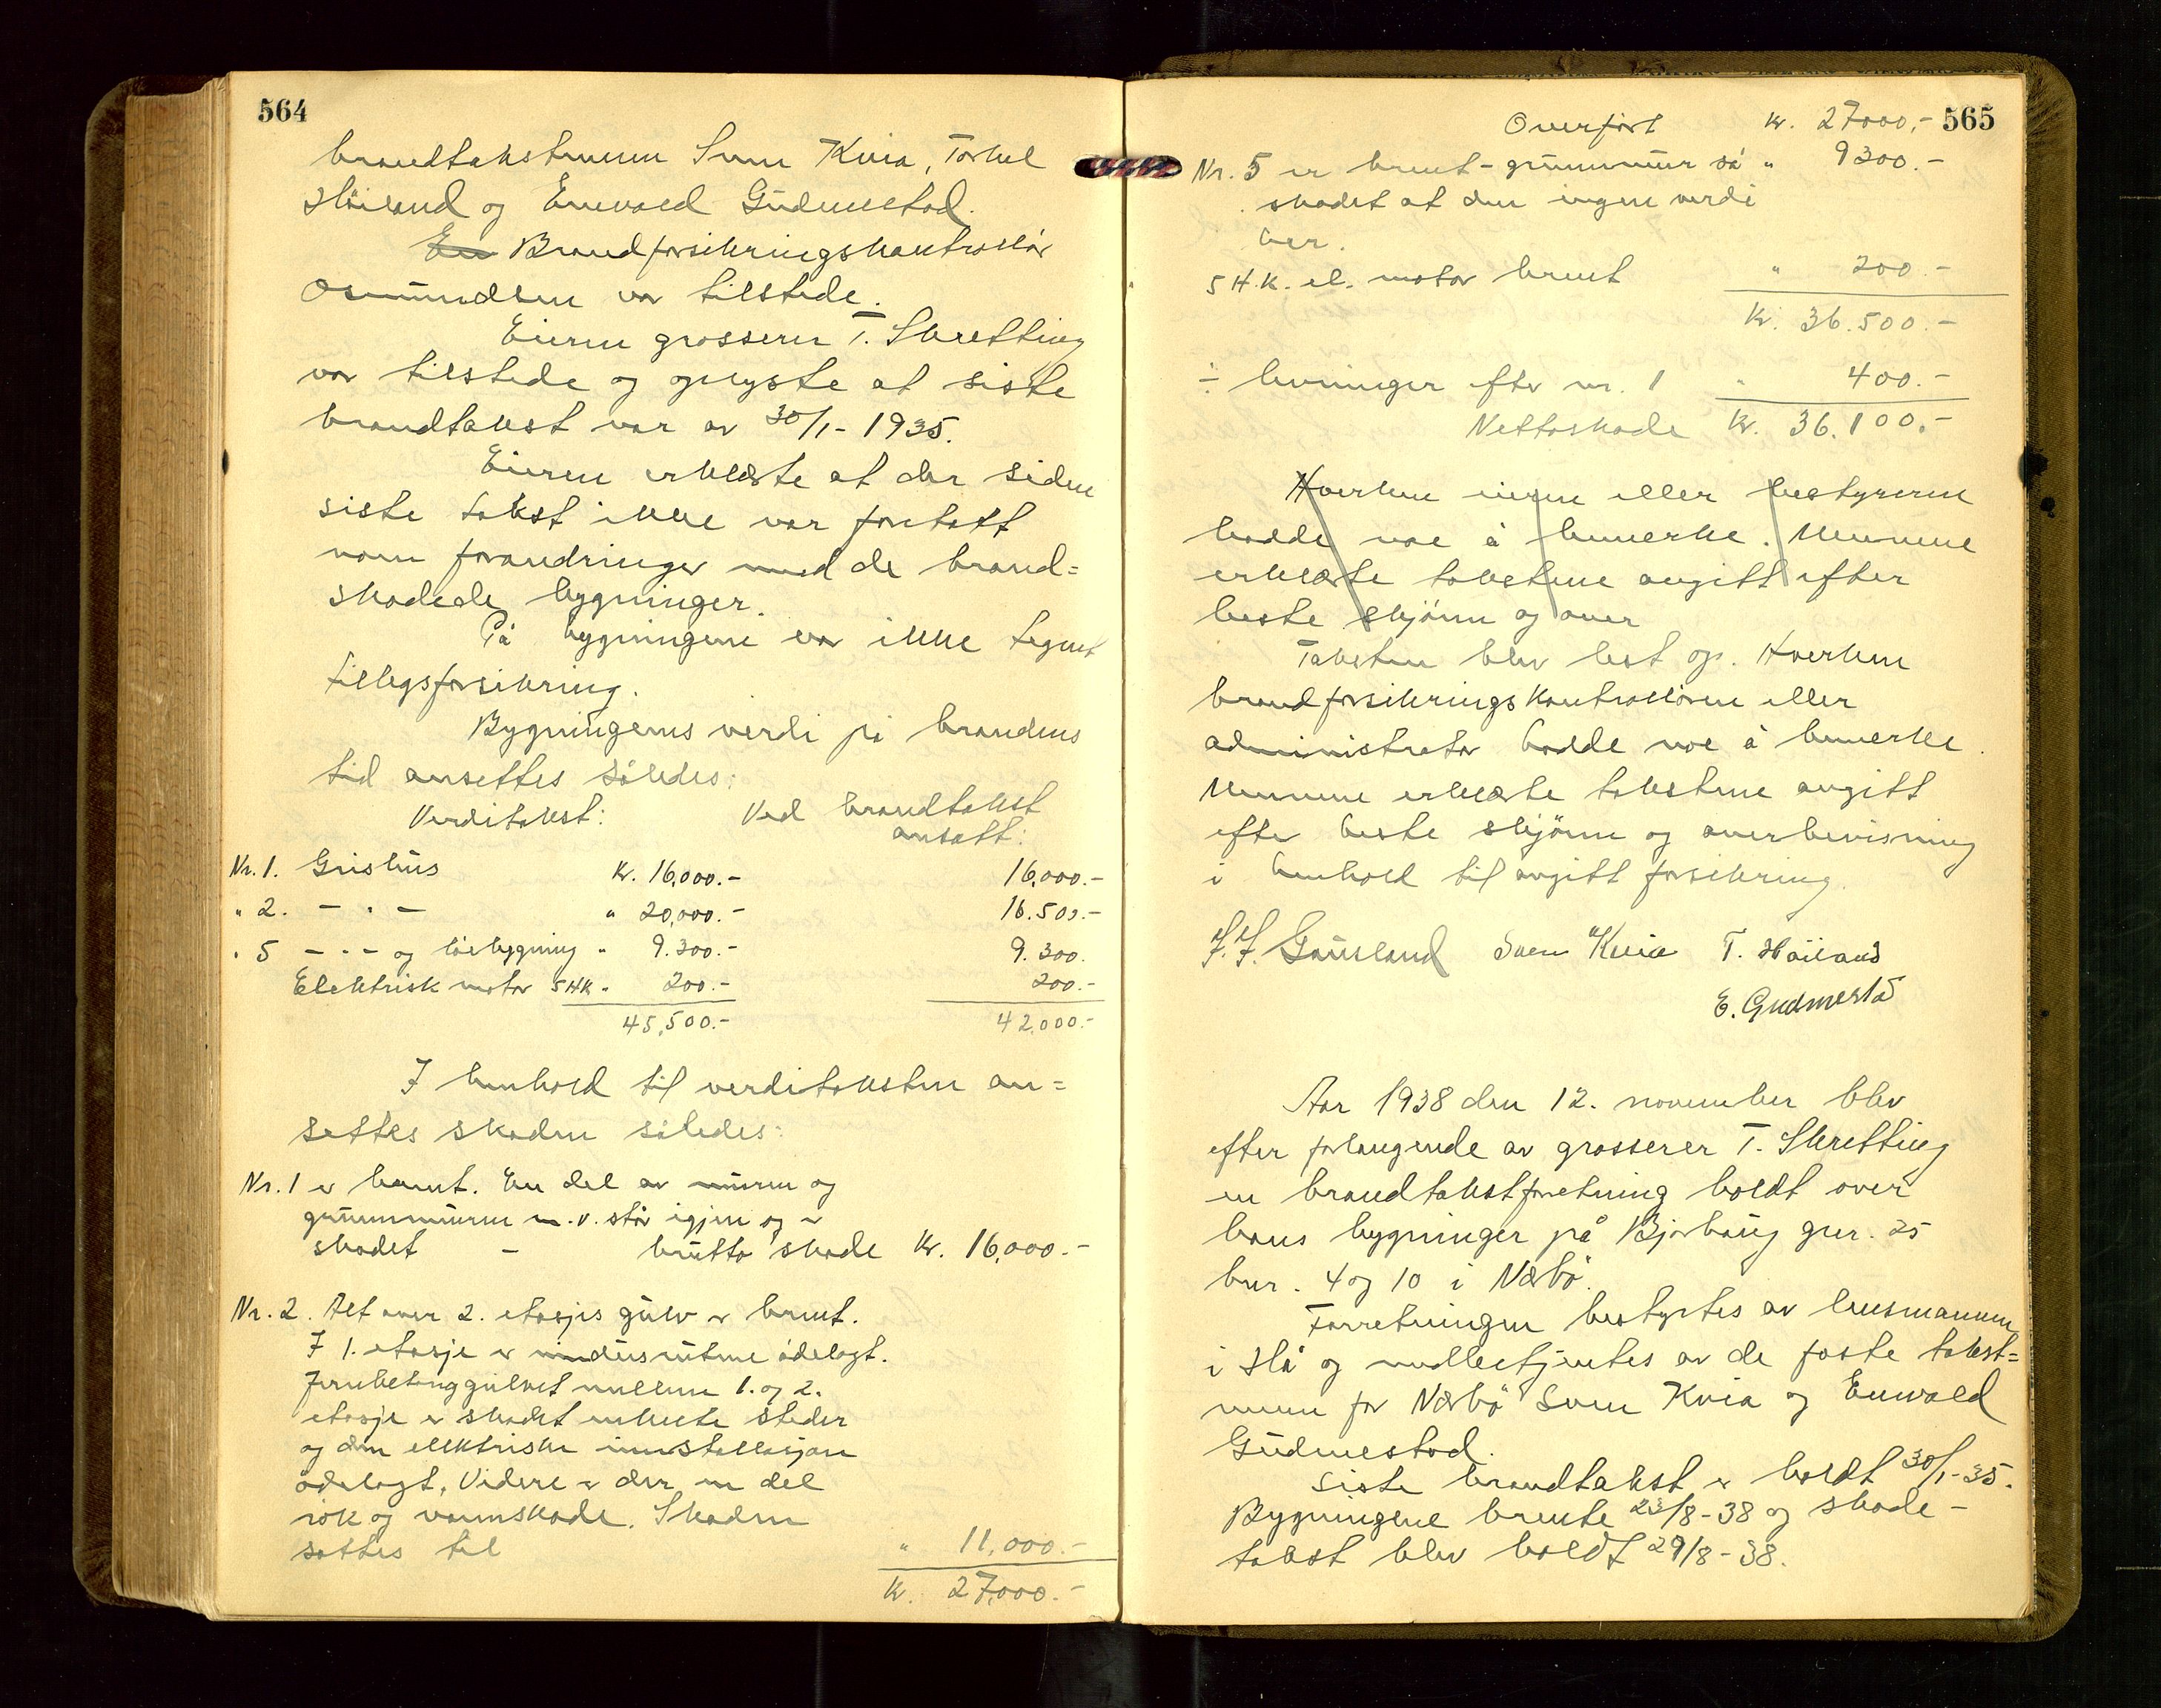 564
brandtakstmenn Sven Kvia, Torkel
Höiland og Enevald Gudmestad.
En Brandforsikringskontrollör
Osmundsen var tilstede.
Eieren grosserer T. Skretting
var tilstede og oplyste at siste
brandtakst var av 30/1-1935.
Eieren erklærte at der siden
siste takst ikke var foretatt
noen forandringer med de brand=
skadede bygninger.
På bygningene var ikke tegnet
tilleggsforsikring.
Bygningenes verdi på brandens
tid ansettes således:
Verditakst: Ved brandtakst
ansatt:
Nr. 1. Grishus Kr. 16,000.- 16,000.-
" 2. - " - " 20,000.- 16.500.-
" 5 - " - og löebygning " 9.300.- 9.300.
Elektrisk motor 5 HK " 200.- 200.-
45,500.- 42,000.-
I henhold til verditaksten an=
settes skaden således:
Nr. 1 er brent. En del av muren og
grunnmuren m.v. står igjen og er
skadet - brutto skade Kr. 16,000.-
Nr. 2. Alt over 2. etasjes gulv er brent.
I 1. etasje er vindusrutene ödelagt.
Jernbetonggulvet mellem 1. og 2.
etasje er skadet enkelte steder
og den elektriske innstallasjon
ödelagt. Videre er der en del
rök og vannskade. Skaden
settes til " 11,000.-
Kr. 27,000.-
565
Overfört Kr. 27000.-
Nr. 5 er brent - grunnmur så " 9300.-
skadet at den ingen verdi
her.
5 H.K. el. motor brent " 200.-
Kr. 36.500.-
÷ levninger efter nr. 1 " 400.-
Nettoskade Kr. 36.100.-
Hverken eieren eller bestyreren
hadde noe å bemerke. Mennene
erklærte takstene avgitt efter
beste skjönn og over
Taksten blev lest op. Hverken
brandforsikringskontrollören eller
administrator hadde noe å bemerke.
Mennene erklærte takstene avgitt
efter beste skjönn og overbevisning
i henhold til avgitt forsikring.
J. J. Gausland Sven Kvia T. Höiland
E. Gudmestad
Aar 1938 den 12. november blev
efter forlangende av grosserer T. Skretting
en brandtakstforretning holdt over
hans bygninger på Bjorhaug gnr. 25
bnr. 4 og 10 i Nærbö.
Forretningen bestyrtes av lensmannen
i Hå og medbetjentes av de faste takst=
menn for Nærbö Sven Kvia og Enevald
Gudmestad.
Siste brandtakst er holdt 30/1-35.
Bygningene brente 23/8-38 og skade-
takst blev holdt 29/8-38.